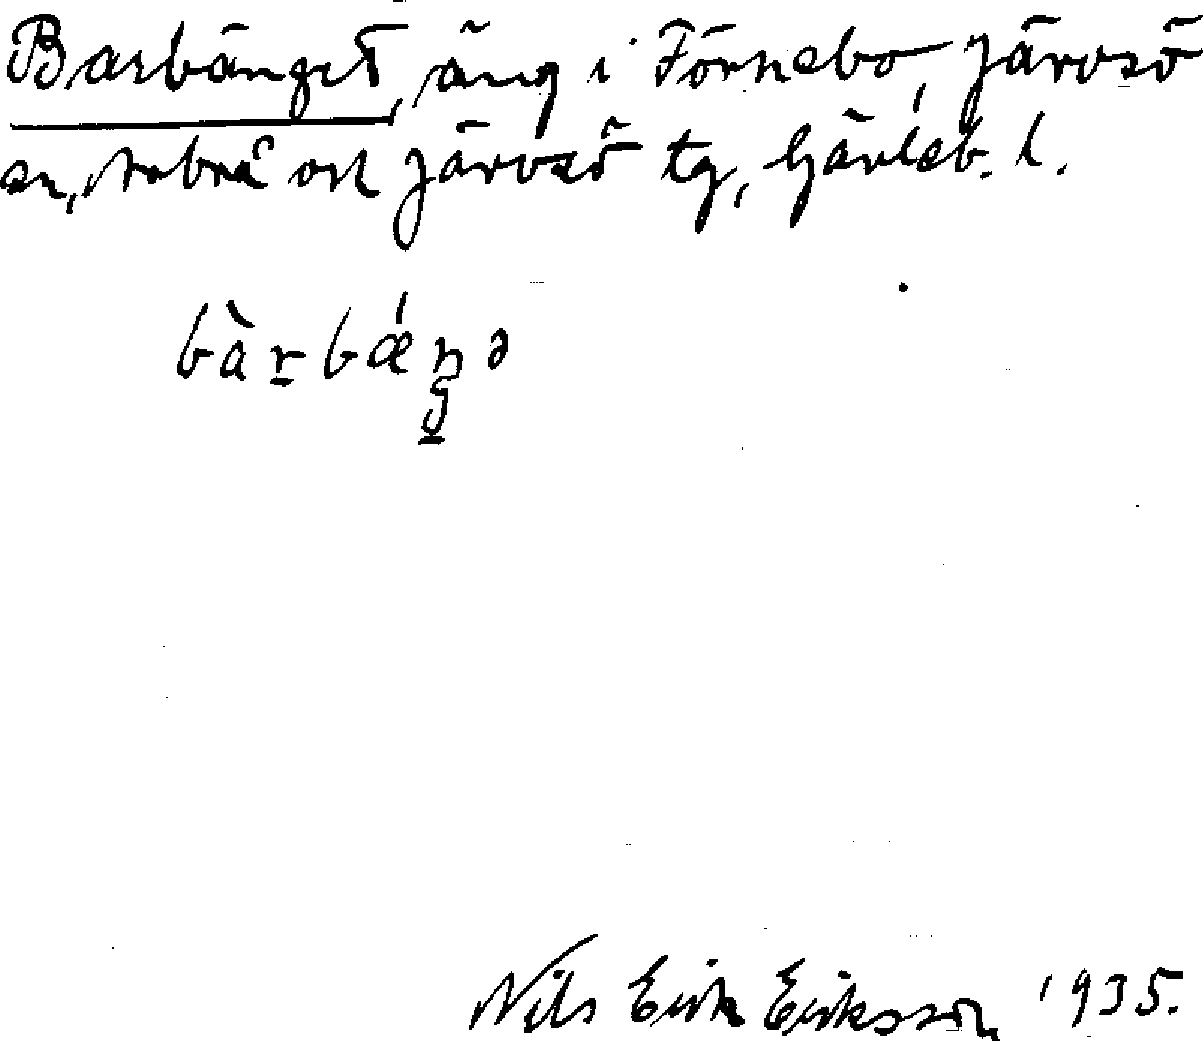 Barbänget, äng i Förnebo, Järvsö
sn, Arbrå och Järvsö tg, Gävleb. l.
bàrbǽŋə
Nils Erik Eriksson 1935.